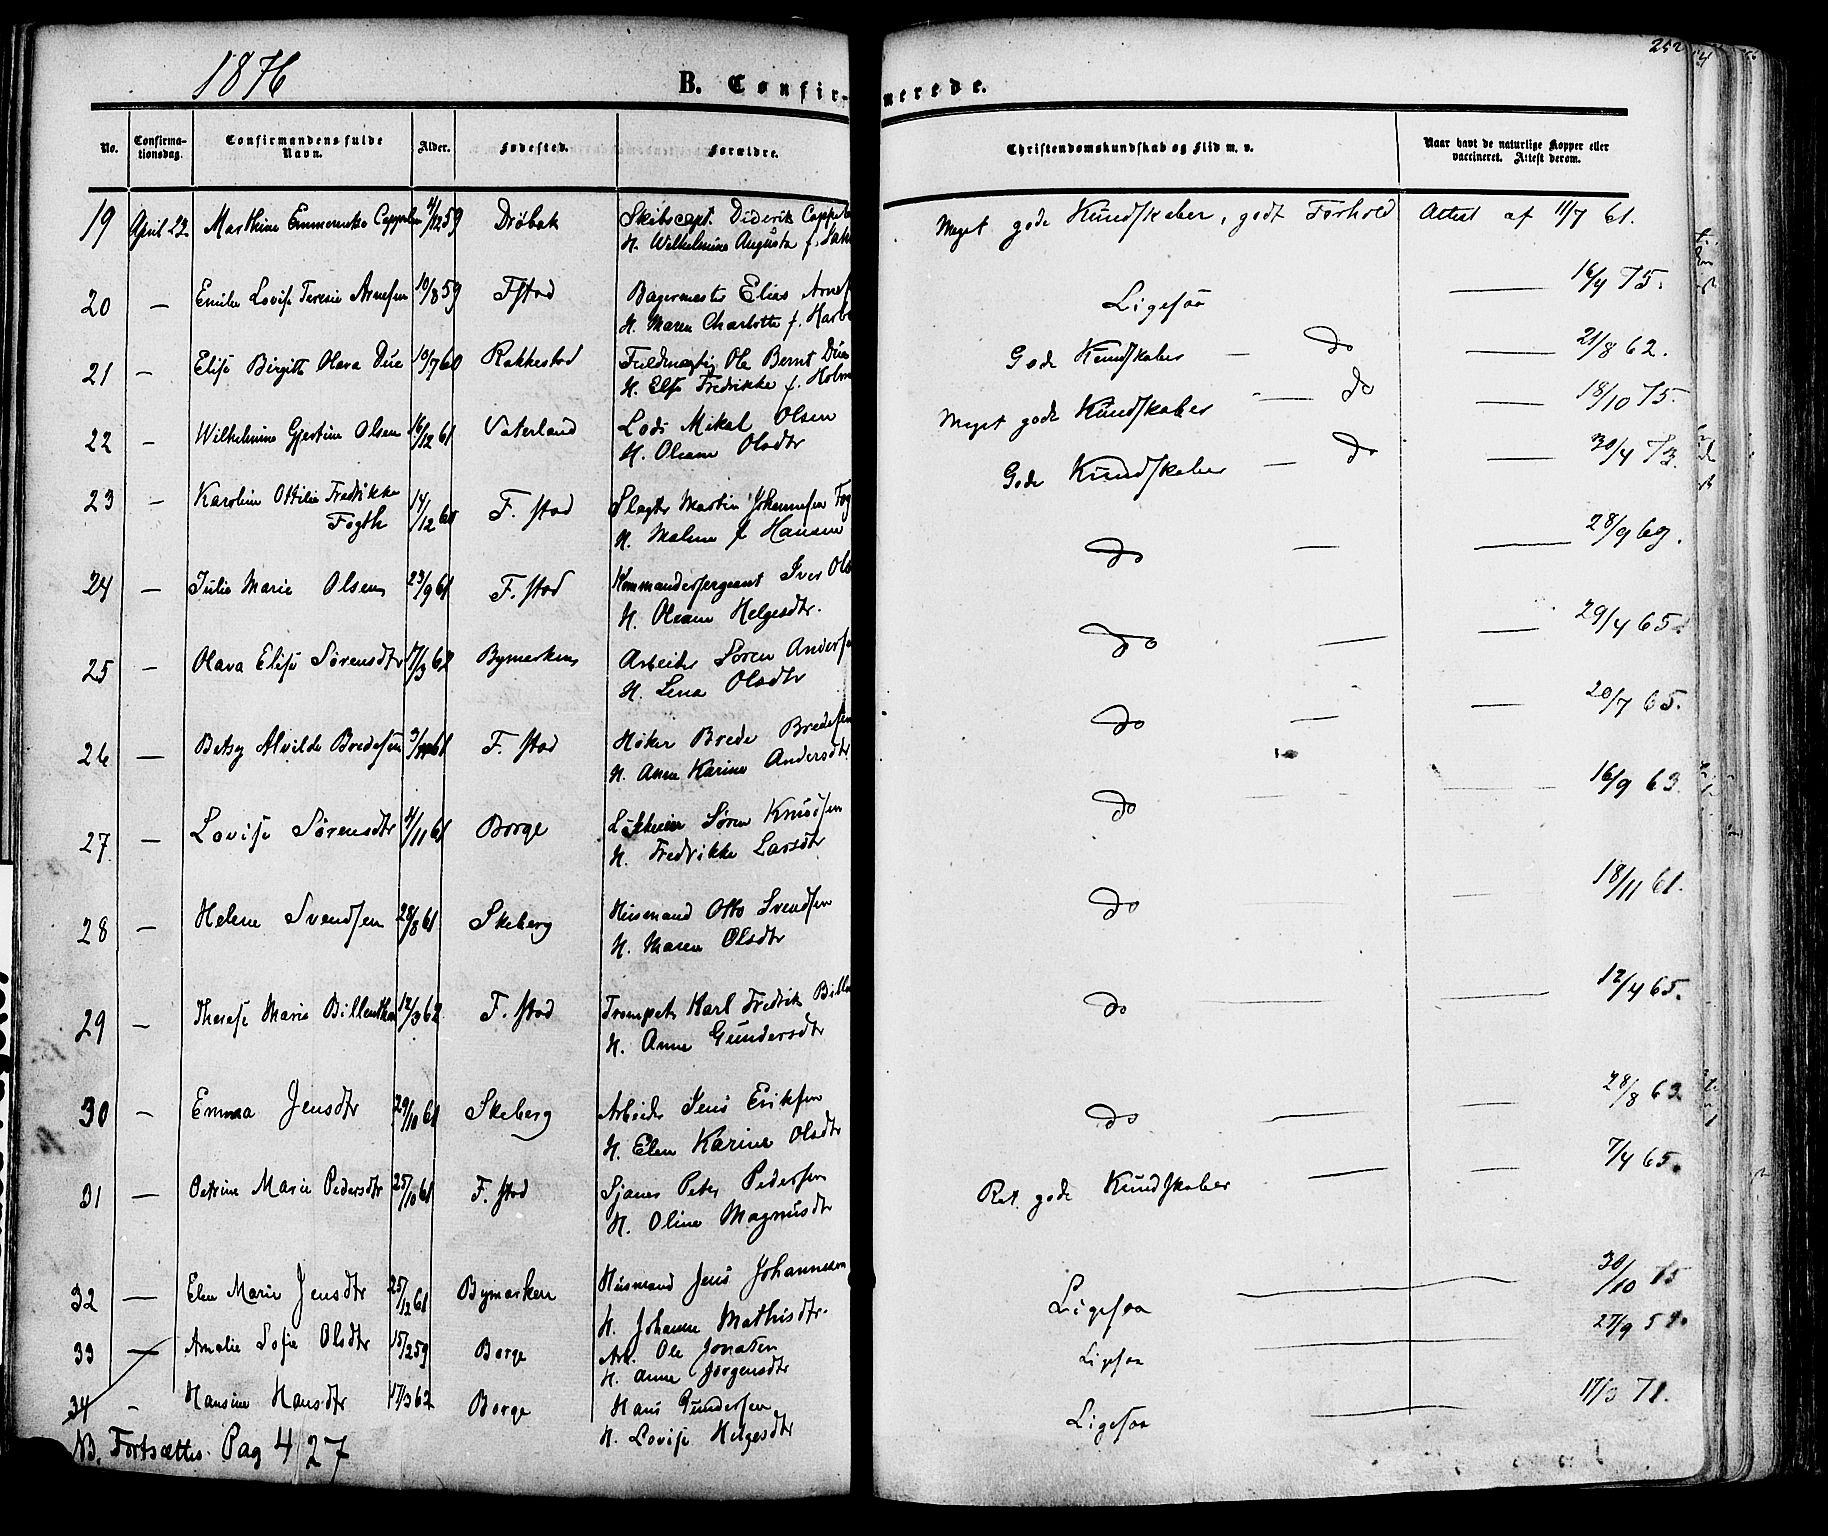 252
1876
B. Confirmerede.
No. Confirmationsdag. Confirmandens fulde Navn. Alder. Fødested. Forældre. Christendomskundskab og Flid m. v. Naar havt de naturlige Kopper eller vaccineret. Attest derom.
19 April 23. Marthine Emmerentse 4/12 59 Drøbak Skibscapt. Diderik Meget gode Kundskaber, godt Forhold Attest af 11/7 61.
H. Wilhelmine Augusta f.
20 — Emilie Lovise Teresie Arnesen 10/8 59 Fstad Bagermester Elias Ligesaa — 16/4 75.
H. Maren Charlotte f.
21 — Elise Birgitte Olava Due 10/7 60 Rakkestad Fuldmægtig Ole Bernt Due Gode Kundskaber — do — 21/8 62.
H. Else Fredrikke f. Holm
22 — Wilhelmine Gjertine Olsen 16/12 61 Vaterland Lods Mikal Olsen Meget gode Kundskaber — do — 18/10 75.
H. Oleane Olsdtr
23 — Karoline Ottilie Fredrikke Fogth 14/12 60 F. stad Slagter Martin Johannesen Gode Kundskaber — do — 30/4 73.
H. Malene f Hansen
24 — Julie Marie Olsen 23/9 61 F. stad Kommandersergeant Iver do — — 28/9 63.
H. Oleane Helgesdtr.
25 — Olava Elise Sørensdtr 17/3 62 Bymarken Arbeider Søren do — — 29/4 65.
H. Lena Olsdtr
26 — Betsy Alvilde Bredesen F. stad Høker Brede Bredesen do — — 20/7 65.
H. Anne Karine Andersdtr
27. — Lovise Sørensdtr 4/11 61 Borge Søren Knudsen do — — 16/9 63.
H. Fredrikke Larsdtr
28 — Helene Svendsen 28/8 61 Skeberg Husmand Otto Svendsen do — — 18/11 61.
H. Maren Olsdtr
29 — Therese Marie 12/3 62 F. stad Trompeter Karl Fredrik do — — 12/4 65.
H. Anne Gundersdtr
30 — Emma Jensdtr 29/10 61 Skeberg Arbeider Jens Eriksen do — — 28/8 63
H. Elen Karine Olsdtr
31 — Petrine Marie Pedersdtr 25/10 61 F. stad Sjømd Peter Pedersen Ret gode Kundskaber — — 7/4 65.
H. Oline Magnusdtr
32 — Elen Marie Jensdtr 25/12 61 Bymarken Husmand Jens Johannesen Ligesaa — — 30/10 75
H. Johanne Mathisdtr.
33 — Amalie Sofie Olsdtr 15/2 59 Borge Arb. Ole Ligesaa — —
H. Anne Jørgensdtr
34 — Hansine Hansdtr 17/3 62 Borge Hans Gundersen Ligesaa — — 17/3 71.
H. Lovise Helgesdtr
NB. Fortsættes Pag 427